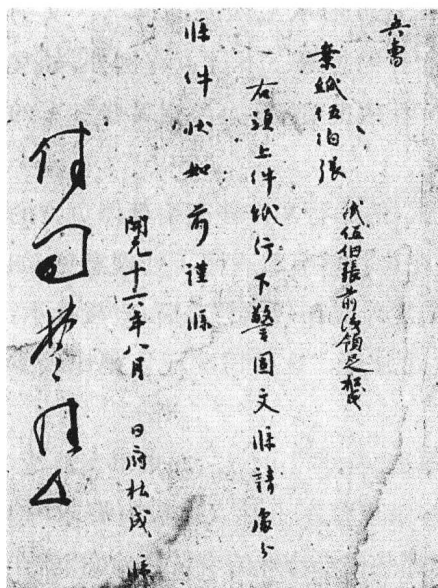 兵曹
案紙伍伯張 紙伍伯張前後領足杜成
右須上件紙行下警固文牒請處分
牒件狀如前謹牒
開元十六年八月 日府杜成 牒
付司楚珪示